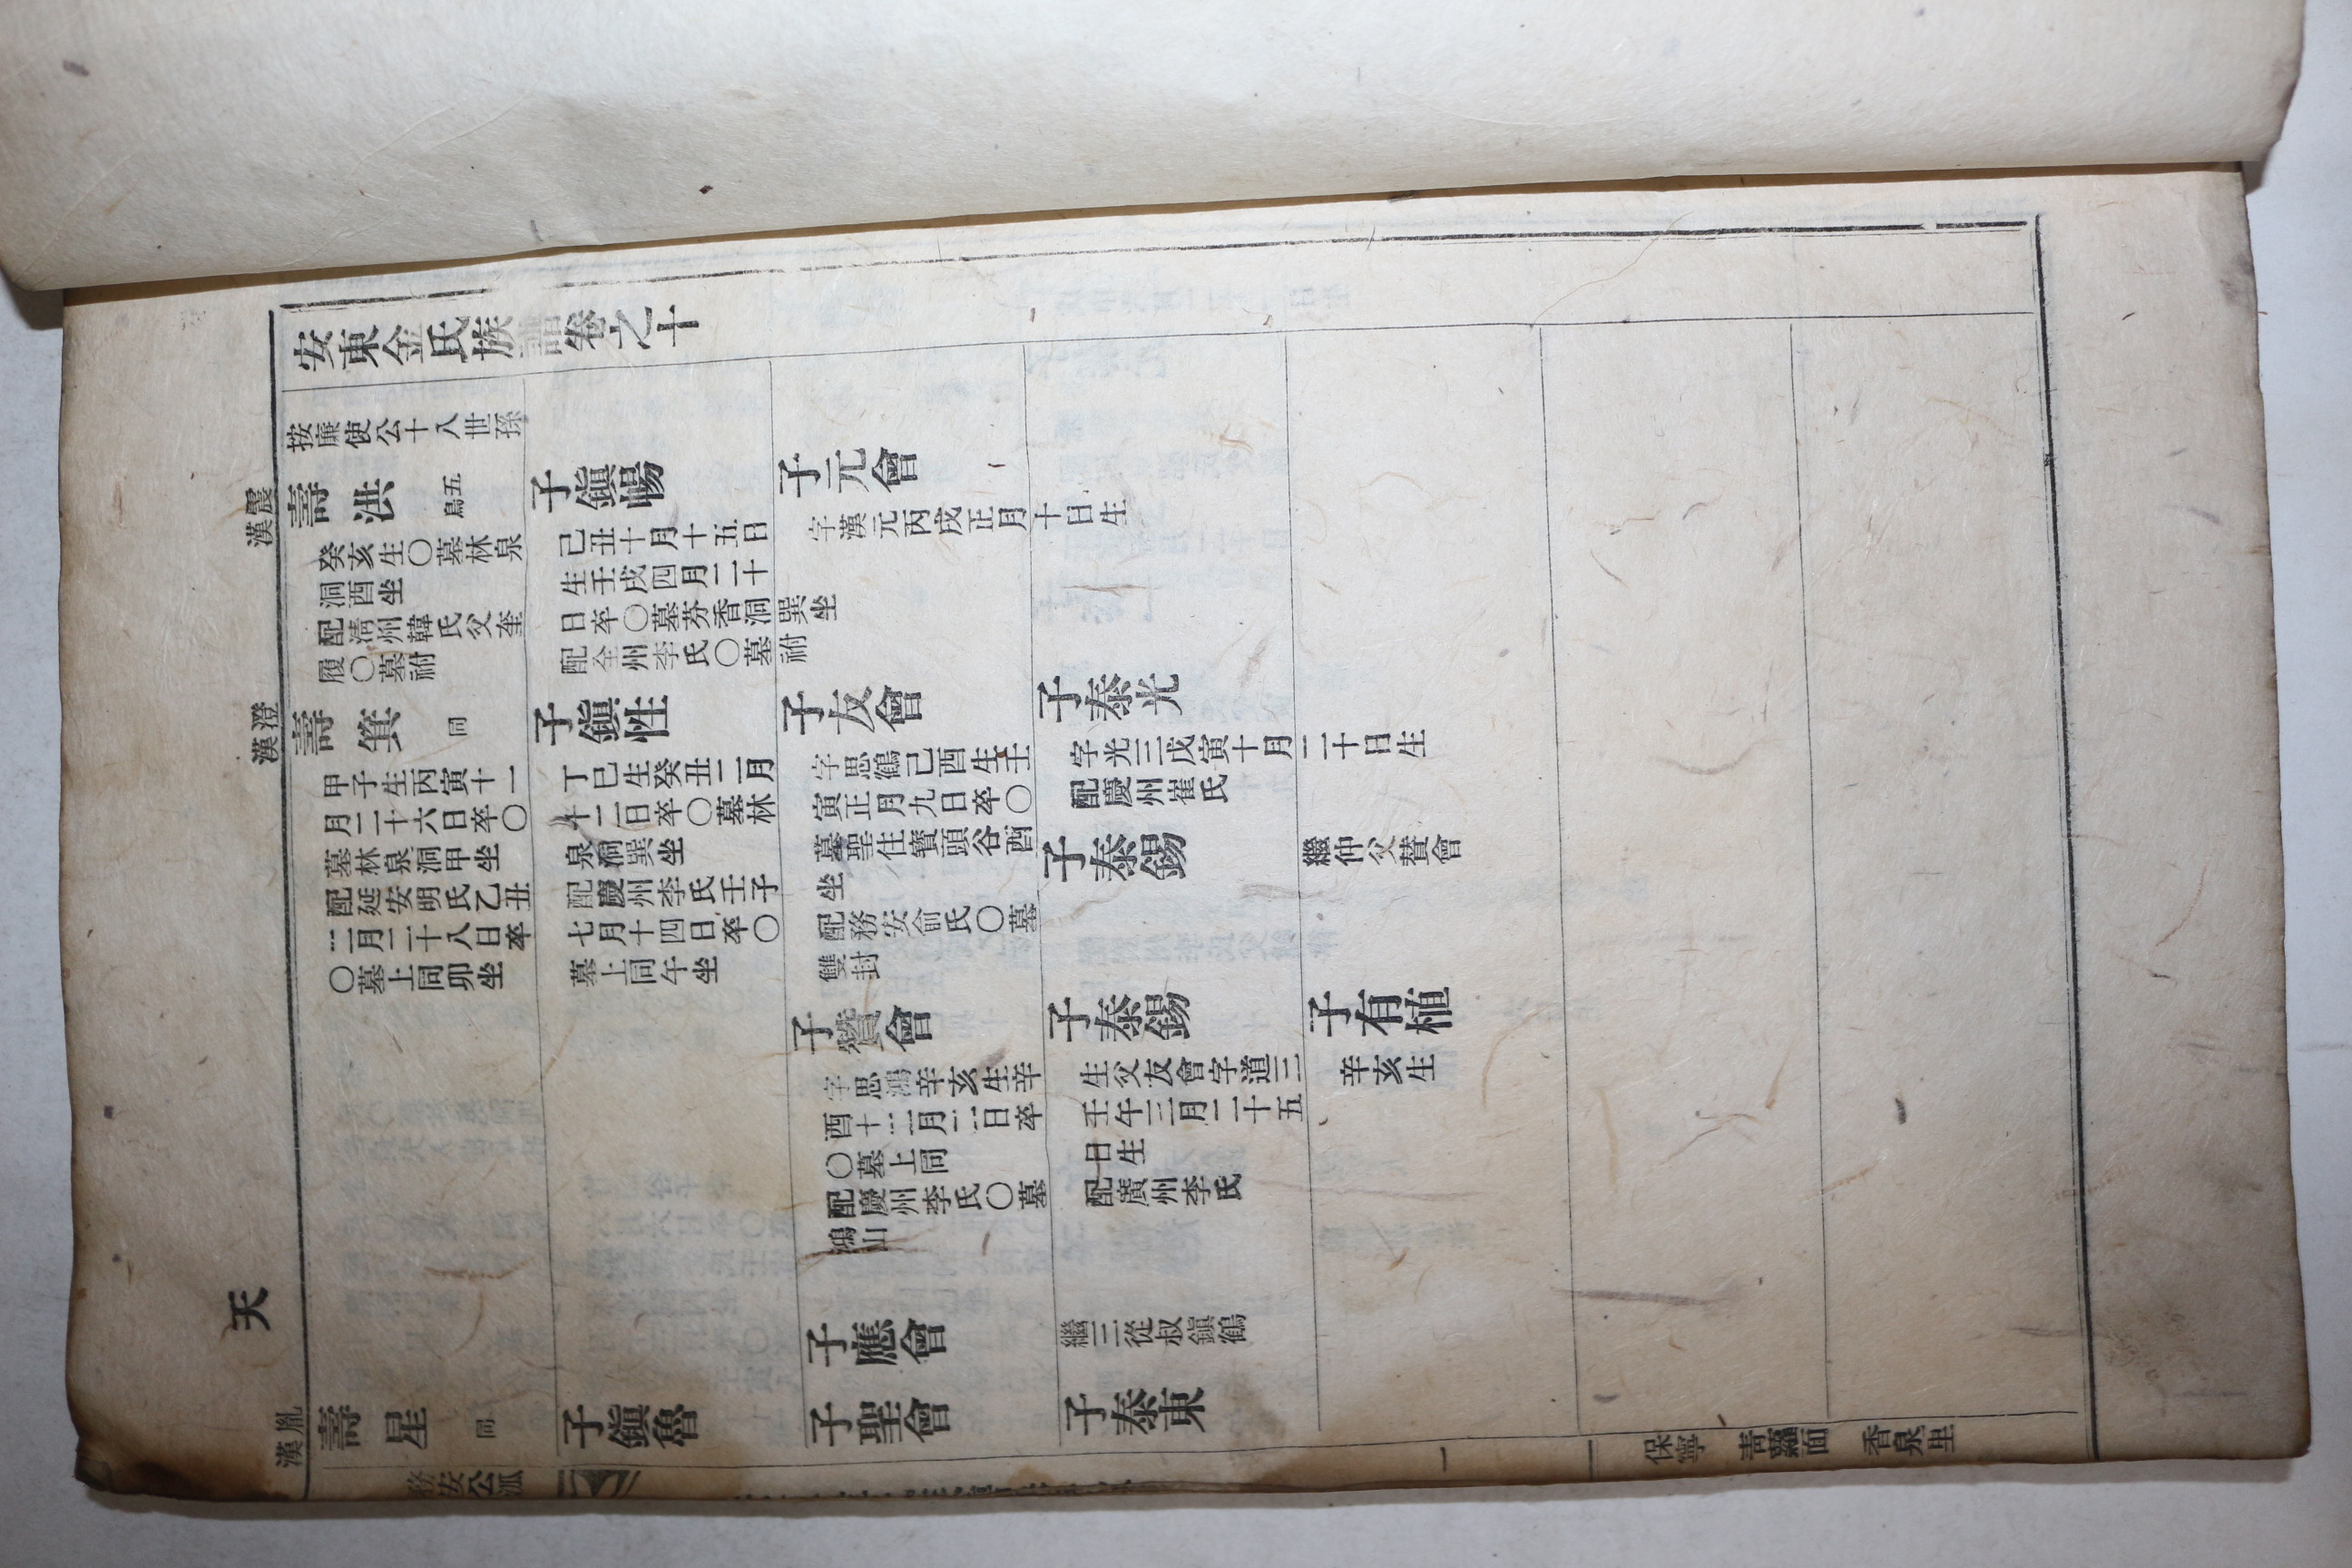 安東金氏族譜卷之十
按廉使公十八世孫
震漢
壽洪 五鳥
癸亥生〇墓林泉
洞酉坐
配淸州韓氏父奎
履〇墓祔
子鎭暢
己丑十月十五日
生壬戌四月二十
日卒〇墓芬香洞巽坐
配全州李氏〇墓祔
子元會
字漢元丙戌正月十日生
澄漢
壽箕 同
甲子生丙寅十一
月二十六日卒〇
墓林泉洞甲坐
配延安明氏乙丑
三月二十八日卒
〇墓上同卯坐
子鎭性
丁巳生癸丑二月
十二日卒〇墓林
泉洞巽坐
配慶州李氏壬子
七月十四日卒〇
墓上同午坐
子友會
字思鶴己酉生壬
寅正月九日卒〇
墓聖住寶頭谷酉
坐
配務安俞氏〇墓
雙封
子泰光
字光三戊寅十月二十日生
配慶州崔氏
子泰錫
繼仲父賛會
子贊會
字思鴻辛亥生辛
酉十二月二日卒
〇墓上同
配慶州李氏〇墓
鴻山
子泰錫
生父友會字道三
壬午三月二十五
日生
配廣州李氏
子有植
辛亥生
子應會
繼三從叔鎭鶴
天
胤漢
壽星 同
子鎭魯
子聖會
子泰東
務安公派
一
保寧 靑蘿面 香泉里